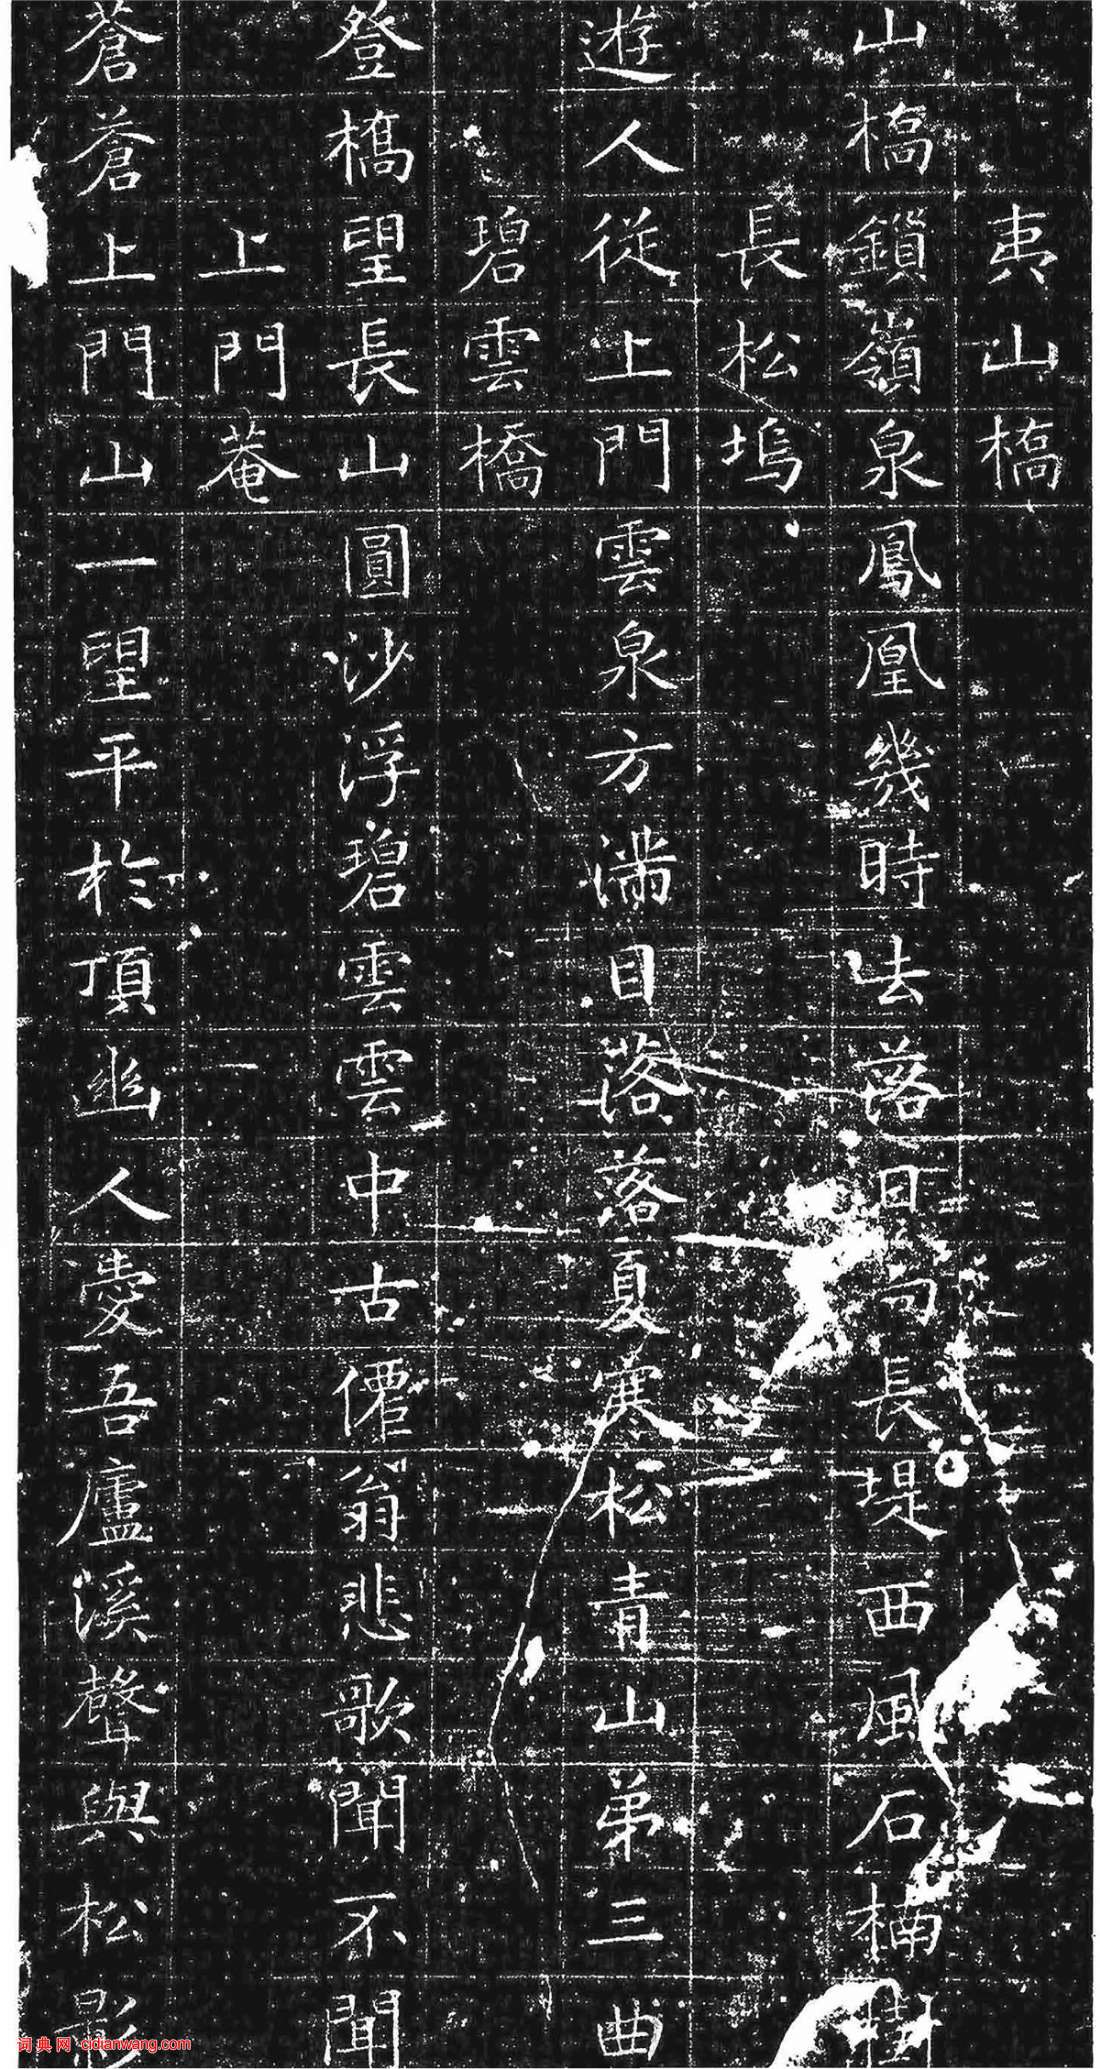 夷山橋
山橋鎖嶺泉鳳凰幾時去落日向長堤西風石楠樹
長松塢
遊人從上門雲泉方滿目落落夏寒松青山弟三曲
碧雲橋
登橋望長山圓沙浮碧雲雲中古僊翁悲歌聞不聞
上門菴
蒼蒼上門山一望平於頂幽人愛吾廬溪聲與松影
词典网 cidianwang.com